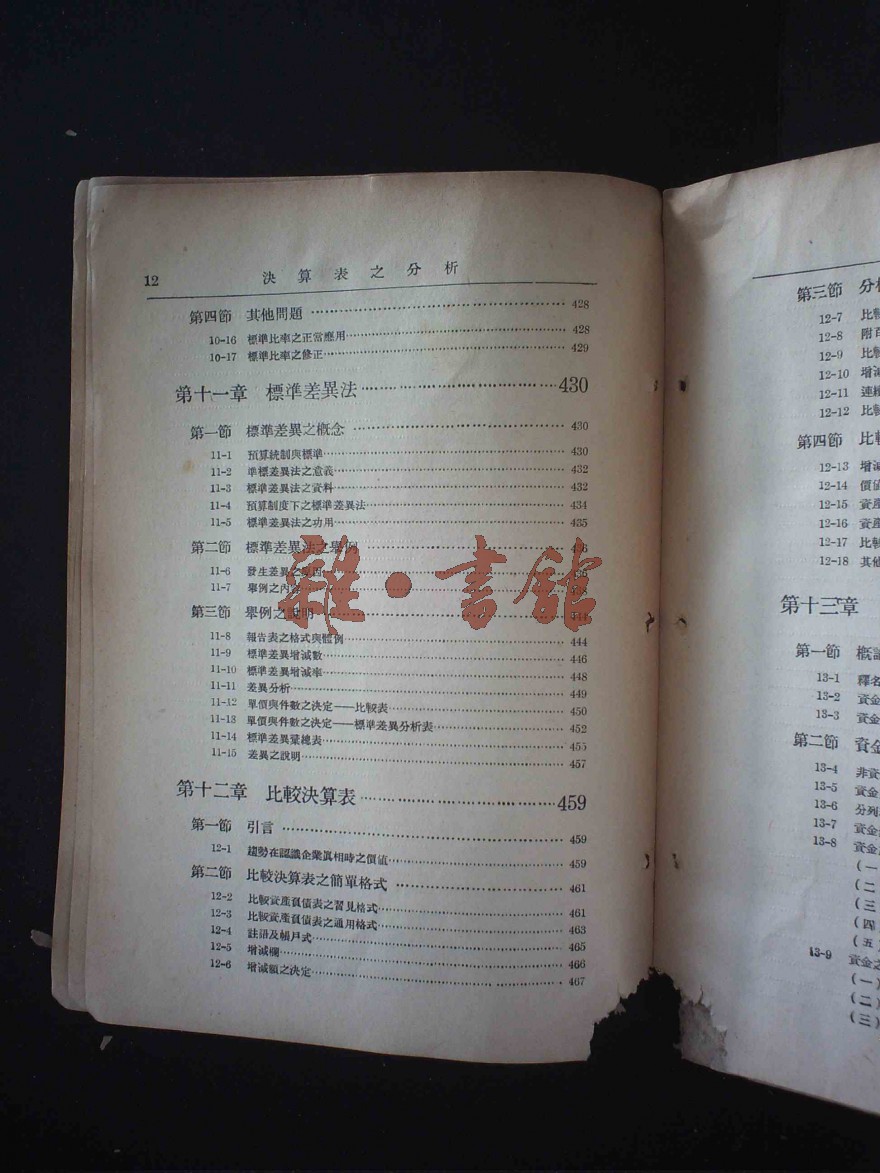 12 決算表之分析
第四節 其他問題 428
10-16 標準比率之正常應用 428
10-17 標準比率之修正 429
第十一章 標準差異法 430
第一節 標準差異之概念 430
11-1 預算統制與標準 430
11-2 準標差異法之意義 432
11-3 標準差異法之資料 432
11-4 預算制度下之標準差異法 434
11-5 標準差異法之功用 435
第二節 標準差異法之舉例
11-6 發生差異之原因
11-7 舉例之內容
雜·書館
第三節 舉例之說明 444
11-8 報告表之格式與體例 444
11-9 標準差異增減數 446
11-10 標準差異增減率 448
11-11 差異分析 449
11-12 單價與件數之決定——比較表 450
11-13 單價與件數之決定——標準差異分析表 452
11-14 標準差異彙總表 455
11-15 差異之說明 457
第十二章 比較決算表 459
第一節 引言 459
12-1 趨勢在認識企業眞相時之價值 459
第二節 比較決算表之簡單格式 461
12-2 比較資產負債表之習見格式 461
12-3 比較資產負債表之通用格式 463
12-4 註語及帳戶式 465
12-5 增減欄 466
12-6 增減額之決定 467
第三節 分析
12-7 比較
12-8 附百
12-9 比較
12-10 增減
12-11 連續
12-12 比較
第四節 比較
12-13 增減
12-14 價值
12-15 資產
12-16 資產
12-17 比較
12-18 其他
第十三章
第一節 概論
13-1 釋名
13-2 資金
13-3 資金
第二節 資金
13-4 非資
13-5 資金
13-6 分列
13-7 資金
13-8 資金
(一)
(二)
(三)
(四)
(五)
13-9 資金之
(一)
(二)
(三)